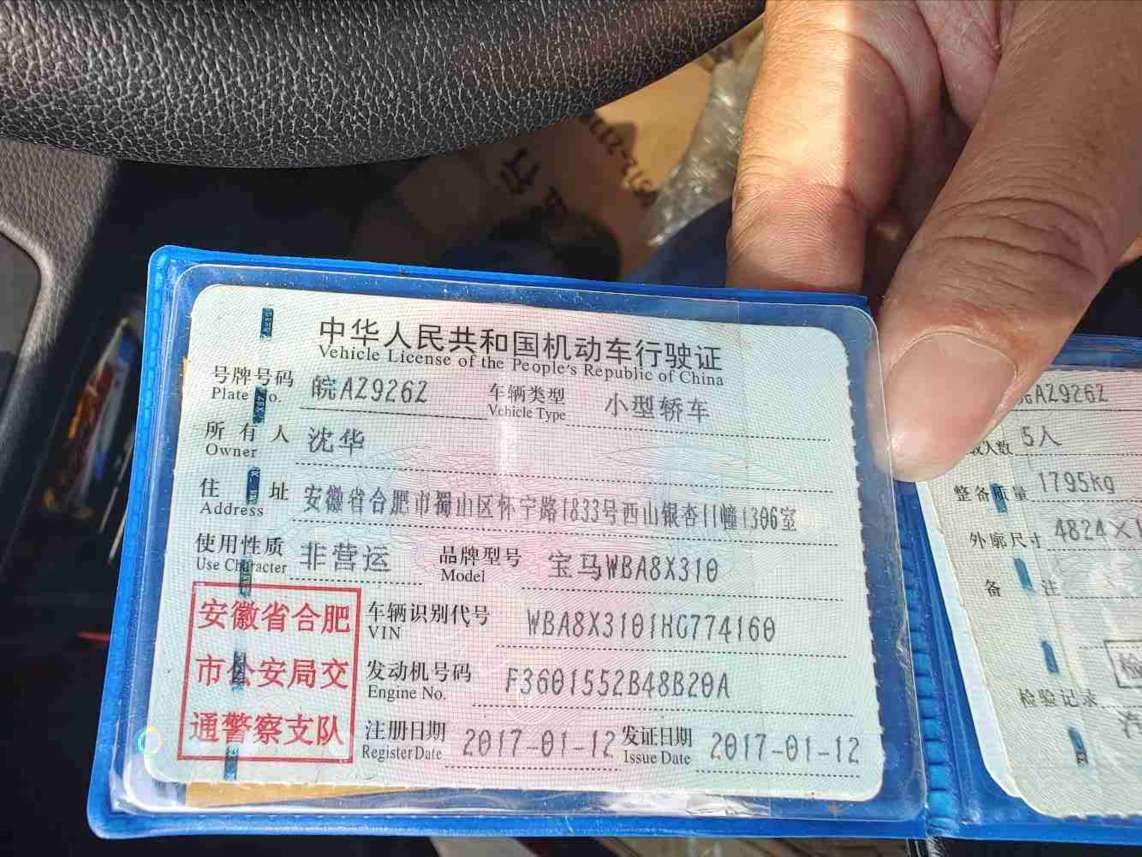 中华人民共和国机动车行驶证
Vehicle License of the People's Republic of China
号牌号码 皖AZ926Z 车辆类型 小型轿车
Plate No. Vehicle Type
所有人 沈华
Owner
住址 安徽省合肥市蜀山区怀宁路1833号西山银杏11幢1306室
Address
使用性质 非营运 品牌型号 宝马WBA8X310
Use Character Model
安徽省合肥
市公安局交
通警察支队
车辆识别代号 WBA8X3101HG774160
VIN
发动机号码 F3601552B48B20A
Engine No.
注册日期 2017-01-12 发证日期 2017-01-12
Register Date Issue Date
皖AZ926Z
人数 5人
整备质量 1795kg
外廓尺寸 4824×
备注
检验记录